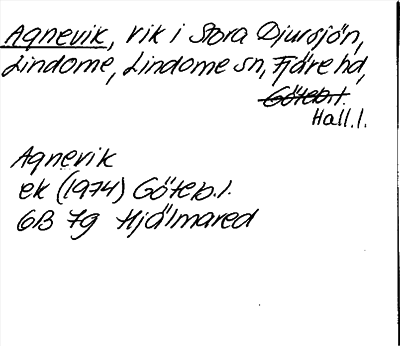 Agnevik, vik i Stora Djursjön,
Lindome, Lindome sn, Fjäre hd,
Göteb.l.
Hall.l.
Agnevik
ek (1974) Göteb.l.
6B 7g Hjälmared